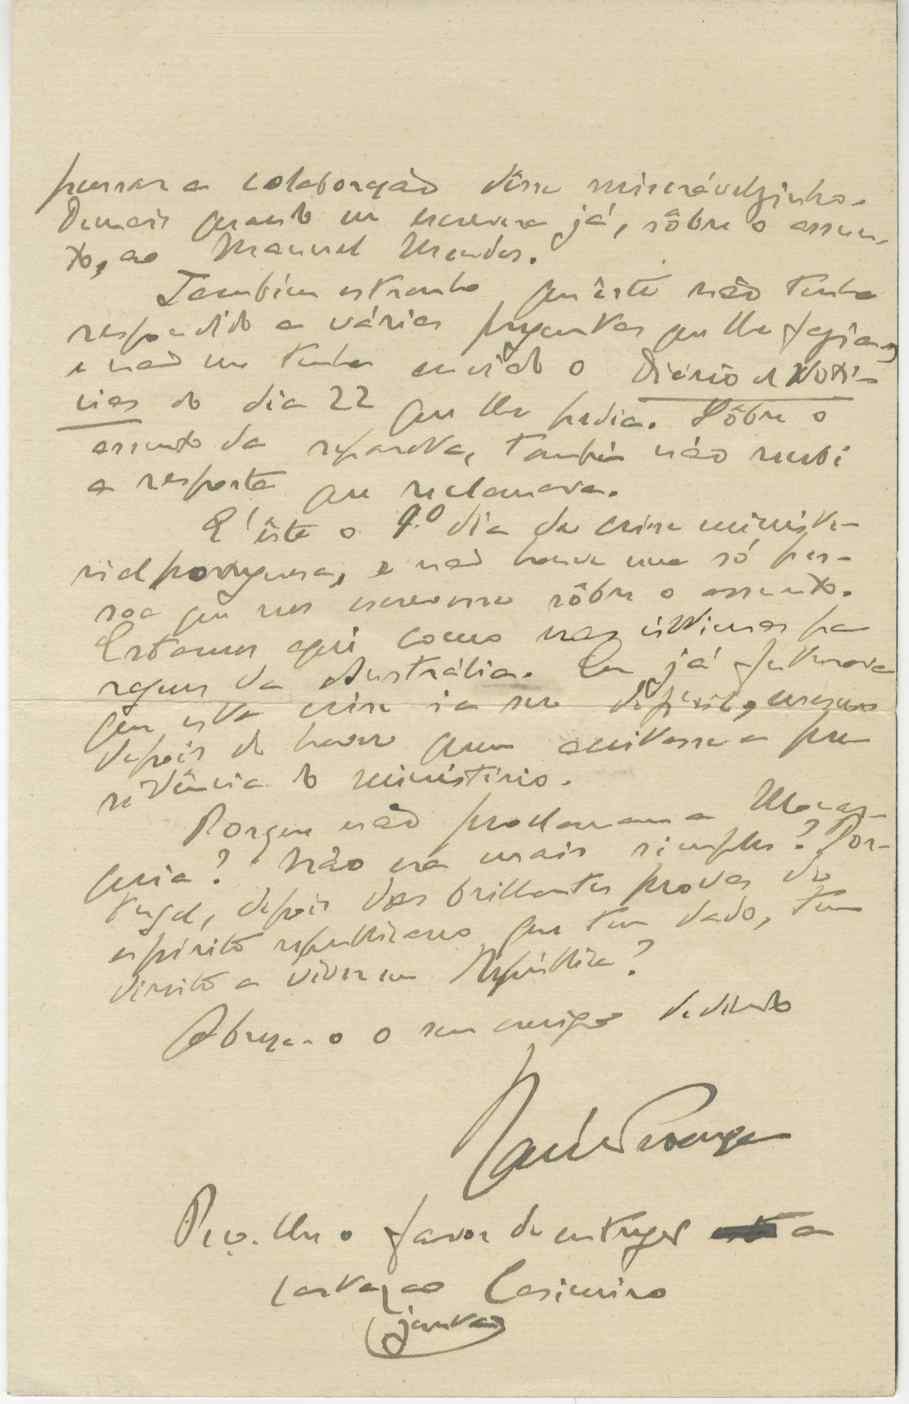 pensar a colaboração dêsse miserávelzinho.
Demais quando eu escrevera já, sôbre o assun-
to, ao Manuel Mendes.
Também estranho que êste não tenha
respondido a várias preguntas que lhe fazia,
e não me tenha enviado o Diário de Notí-
cias do dia 22 que lhe pedia. Sôbre o
assunto da separata, também não recebi
a resposta que reclamava.
E' êste o 9.º dia da crise ministe-
rial portuguesa, e não houve uma só pes-
soa que nos escrevesse sôbre o assunto.
Estamos aqui como nas últimas pa
ragens da Austrália. Eu já
que esta crise ia ser difícil, mesmo
depois de haver quem aceitasse a pre
sidência do ministério.
Porque não proclamam a Monar-
quia? Não era mais simples? Por-
tugal, depois das brilhantes provas de
espírito republicano que tem dado, tem
direito a viver em República?
Abraça-o o seu amigo dedicado
Raúl Proença
Peço-lhe o favor de entregar a
carta ao Casimiro
junta